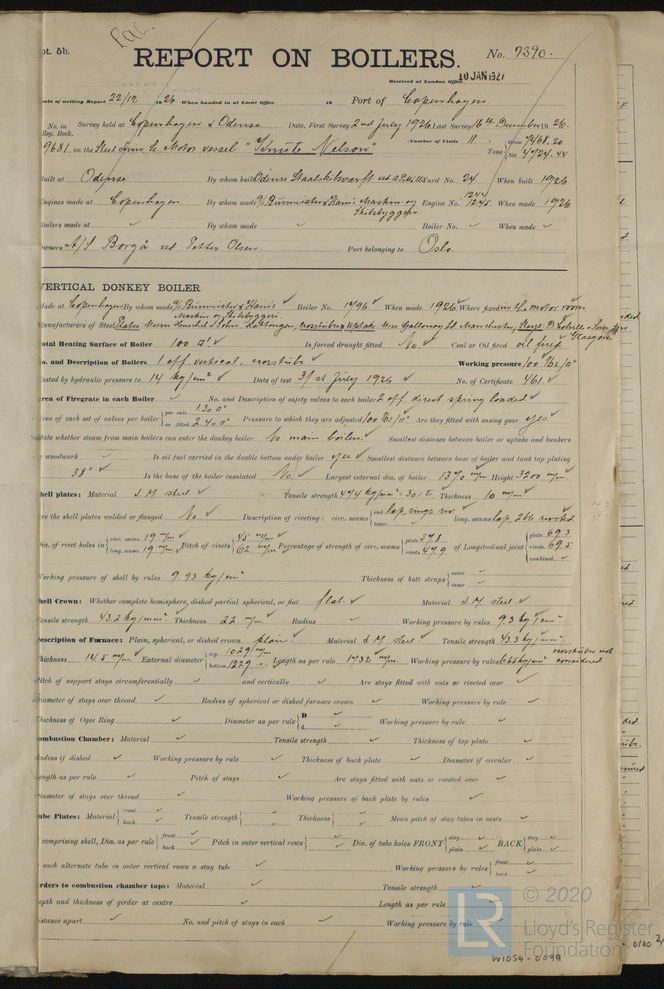 pt. 5b.
REPORT ON BOILERS.
No. 7390.
Received at London Office
10 JAN 1927
ate of writing Report 22/12 1926 When handed in at Local Office 19 Port of Copenhagen
No. in Reg. Book. Survey held at Copenhagen & Odense Date, First Survey 2nd July 1926 Last Survey 16th December 1926.
9681. on the Steel Screw Motor vessel "Knute Nelson" (Number of Visits 11.) Tons Gross 7468.20 Net 4724.44
uilt at Odense By whom built Odense Staalskibsværft ved A.P. Møller Yard No. 24. When built 1926.
ngines made at Copenhagen By whom made A/S Burmeister & Wain's Maskin- og Skibsbyggeri Engine No. 1244 1245 When made 1926
oilers made at By whom made Boiler No. When made
wners A/S Borgå ved Petter Olsen. Port belonging to Oslo.
VERTICAL DONKEY BOILER.
ade at Copenhagen By whom made A/S Burmeister & Wain's Maskin og Skibsbyggeri Boiler No. 1796 When made 1926 Where fixed in the motor room
anufacturers of Steel Plates Messrs Henschel & Sohn, Hattingen, crosstubes & Uptake: Messrs Galloway Ltd. Manchester, Stays: D. Colville & Sons Glasgow
otal Heating Surface of Boiler 100 □' Is forced draught fitted No. Coal or Oil fired oil fired
o. and Description of Boilers 1 off vertical, crosstube Working pressure 100 lbs/□"
ested by hydraulic pressure to 14 kg/cm² Date of test 31st July 1926 No. of Certificate 461
rea of Firegrate in each Boiler No. and Description of safety valves to each boiler 2 off direct spring loaded
rea of each set of valves per boiler per rule 1.30 □" as fitted 2.40 □" Pressure to which they are adjusted 100 lbs/□" Are they fitted with easing gear yes
tate whether steam from main boilers can enter the donkey boiler No main boilers. Smallest distance between boiler or uptake and bunkers
r woodwork Is oil fuel carried in the double bottom under boiler yes Smallest distance between base of boiler and tank top plating
38" Is the base of the boiler insulated No. Largest internal dia. of boiler 1370 m/m Height 3200 m/m.
hell plates: Material S.M. steel Tensile strength 47.4 kg/mm² Thickness 10 m/m
re the shell plates welded or flanged No Description of riveting: circ. seams end lap, single riv inter. long. seams lap, dbl riveted
ia. of rivet holes in circ. seams 19 m/m long. seams 19 m/m Pitch of rivets 45 m/m 62 m/m Percentage of strength of circ. seams plate 57.8 rivets 47.9 of Longitudinal joint plate 69.3 rivets 69.5 combined.
orking pressure of shell by rules 9.93 kg/cm² Thickness of butt straps outer inner
hell Crown: Whether complete hemisphere, dished partial spherical, or flat flat. Material S.M. steel
ensile strength 43.2 kg/mm² Thickness 22 m/m Radius Working pressure by rules 9.3 kg/cm²
escription of Furnace: Plain, spherical, or dished crown plain Material S.M. steel Tensile strength 43.3 kg/mm²
hickness 14.5 m/m. External diameter top 1029 m/m bottom 1229 Length as per rule 1732 m/m. Working pressure by rules 6.65 kg/cm² crosstubes not considered.
itch of support stays circumferentially and vertically Are stays fitted with nuts or riveted over
iameter of stays over thread Radius of spherical or dished furnace crown Working pressure by rule
hickness of Ogee Ring Diameter as per rule D d Working pressure by rule
ombustion Chamber: Material Tensile strength Thickness of top plate
adius if dished Working pressure by rule Thickness of back plate Diameter if circular
ength as per rule Pitch of stays Are stays fitted with nuts or riveted over
iameter of stays over thread Working pressure of back plate by rules
ube Plates: Material front back Tensile strength Thickness Mean pitch of stay tubes in nests
comprising shell, Dia. as per rule front back Pitch in outer vertical rows Dia. of tube holes FRONT stay plain BACK stay plain
each alternate tube in outer vertical rows a stay tube Working pressure by rules front back
rders to combustion chamber tops: Material Tensile strength
epth and thickness of girder at centre Length as per rule
istance apart No. and pitch of stays in each Working pressure by rule
© 2020
LR
Lloyd's Register
Foundation
W1054-0099